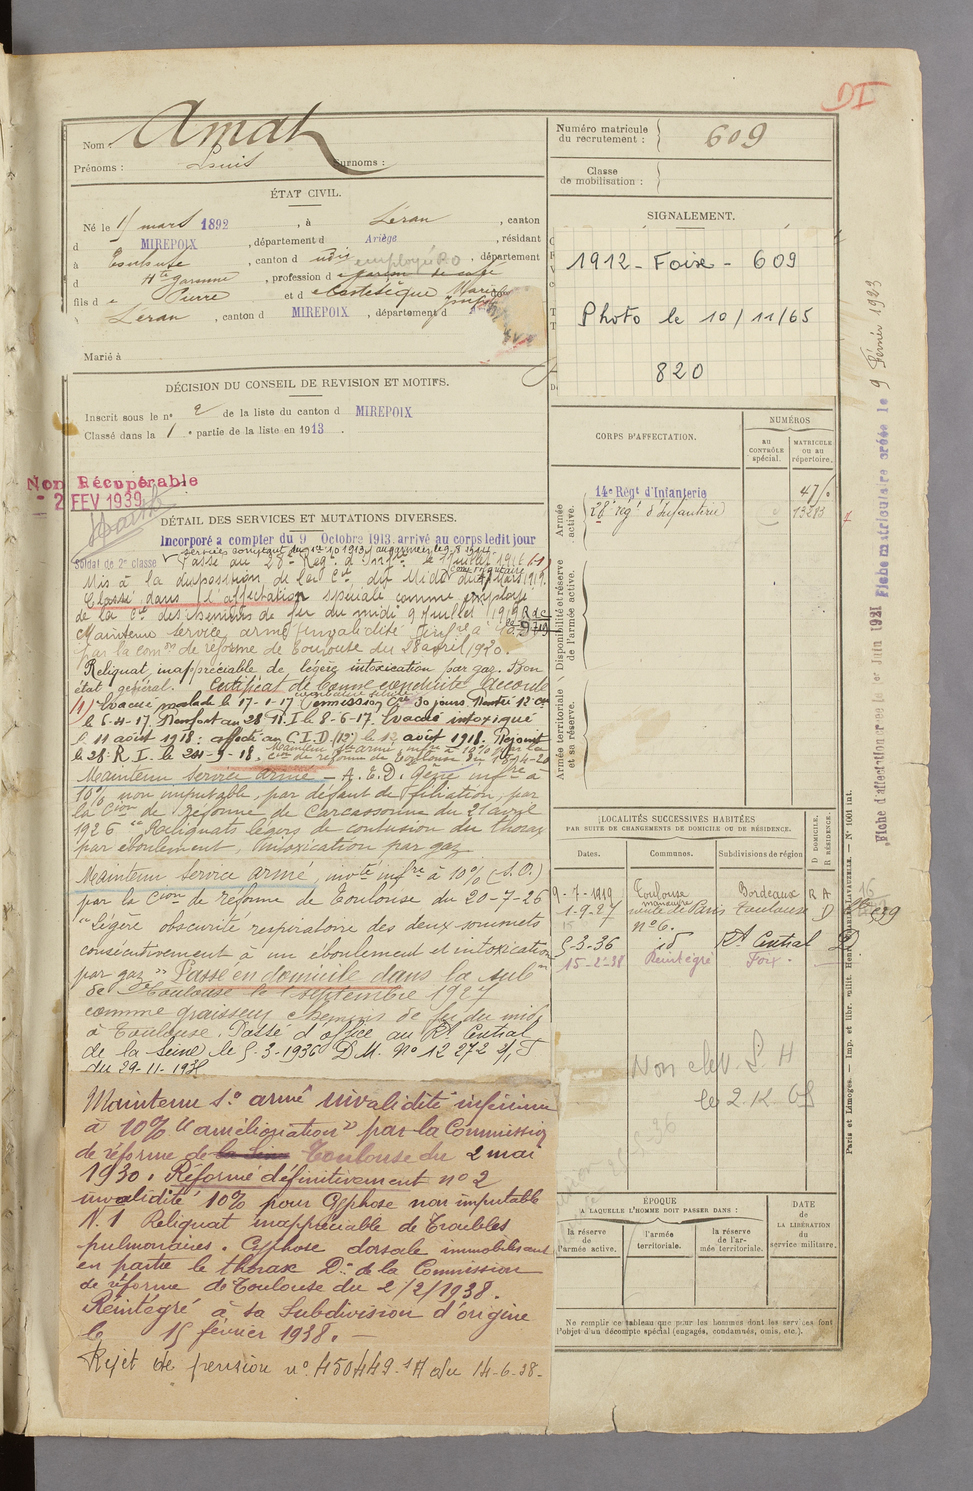 DI
Nom : Amat
Prénoms : Louis Surnoms :
ÉTAT CIVIL.
Né le 15 mars 1892, à Léran, canton
d MIREPOIX, département d Ariège, résidant
à Toulouse, canton d udis employé RO, département
d Hte garonne, profession d garçon de café
fils d e Pierre et d e Marie
Léran, canton d MIREPOIX, département d
Marié à
DÉCISION DU CONSEIL DE REVISION ET MOTIFS.
Inscrit sous le no 2 de la liste du canton d MIREPOIX
Classé dans la 1 e partie de la liste en 1913.
Non Récupérable
- 2 FEV 1939
DÉTAIL DES SERVICES ET MUTATIONS DIVERSES.
Incorporé à compter du 9 Octobre 1913, arrivé au corps ledit jour
Soldat de 2e classe
services comptant du 1er 10 1913
Passé au 28e Regt d'Infie le 1 juillet 1916 (1)
Mis à la disposition de la Cie du Midi du mars 1919.
Classé dans l'affectation spéciale comme employé
de la Cie des chemins de fer du midi 9 juillet 1919
Maintenu service armé invalidité infre à 10%
par la comon de réforme de Toulouse du 28 avril 1920.
Reliquat inappréciable de légère intoxication par gaz. Bon
état général. Certificat de bonne conduite Accordé
(1) Evacué malade le 17-1-17 Permission Cce 30 jours Rentré 12 Cie
le 6-4-17. Renfort au 28 R.I. le 8-6-17. Evacué intoxiqué
le 11 août 1918 : affecté au C.I.D (12) le 12 août 1918. Rejoint
le 28e R.I. le 24-9-18.
Maintenu service armé - A.E.D. Gène infre à
10% non imputable, par défaut de filiation, par
la Cion de Réforme de Carcassonne du 21 avril
1926 "Reliquats légers de contusion du thorax
par éboulement, Intoxication par gaz
Maintenu Service armé, invté infre à 10% (S.O.)
par la Cion de réforme de Toulouse du 20-7-26
"Légère obscurité respiratoire des deux sommets
consécutivement à un éboulement et intoxication
par gaz" Passé en domicile dans la subon
de Toulouse le 1 septembre 1927
comme graisseur chemins de fer du midi
à Toulouse. Passé d'office au Rt Central
de la Seine le 5-3-1936 D.M. No 12 272 1/T
du 29-11-1935
Maintenu Se armé Invalidité inférieure
à 10% "amélioration" par la Commission
de réforme de la Seine Toulouse du 2 mai
1930. Réformé définitivement no 2
invalidité 10% pour Cyphose non imputable
N. 1 Reliquat inappréciable de Troubles
pulmonaires. Cyphose dorsale immobilisant
en partie le thorax Don de la Commission
de réforme de Toulouse du 2/2/1938.
Réintégré à sa Subdivision d'origine
le 15 février 1938. —
Rejet de pension no 450449 - 1A du 14-6-38-
Numéro matricule
du recrutement : 609
Classe
de mobilisation :
SIGNALEMENT.
1912 - Foix - 609
Photo le 10/11/65
820
CORPS D'AFFECTATION.
NUMÉROS
AU CONTRÔLE spécial.
MATRICULE ou au répertoire.
Armée active.
14e Régt d'Infanterie
28e régt d'Infanterie 13213
Disponibilité et réserve de l'armée active.
Armée territoriale et sa réserve.
LOCALITÉS SUCCESSIVES HABITÉES
PAR SUITE DE CHANGEMENTS DE DOMICILE OU DE RÉSIDENCE.
Dates. Communes. Subdivisions de région
D. DOMICILE, R. RÉSIDENCE.
9-7-1919 Toulouse Bordeaux R A
1-9-27 route de Paris Toulouse D
no 6.
5-3-36 id Rt Central D
15-2-38 Réintégré Foix.
le 2.12.65
ÉPOQUE
A LAQUELLE L'HOMME DOIT PASSER DANS :
la réserve de l'armée active.
l'armée territoriale.
la réserve de l'armée territoriale.
DATE de LA LIBÉRATION du service militaire.
Ne remplir ce tableau que pour les hommes dont les services font
l'objet d'un décompte spécial (engagés, condamnés, omis, etc.).
Fiche d'affectation créée le 1er Juin 1921 Fiche matriculaire créée le 9 Février 1923
Paris et Limoges. — Imp. et libr. milit. Henri CHARLES-LAVAUZELLE. — No 1001 int.